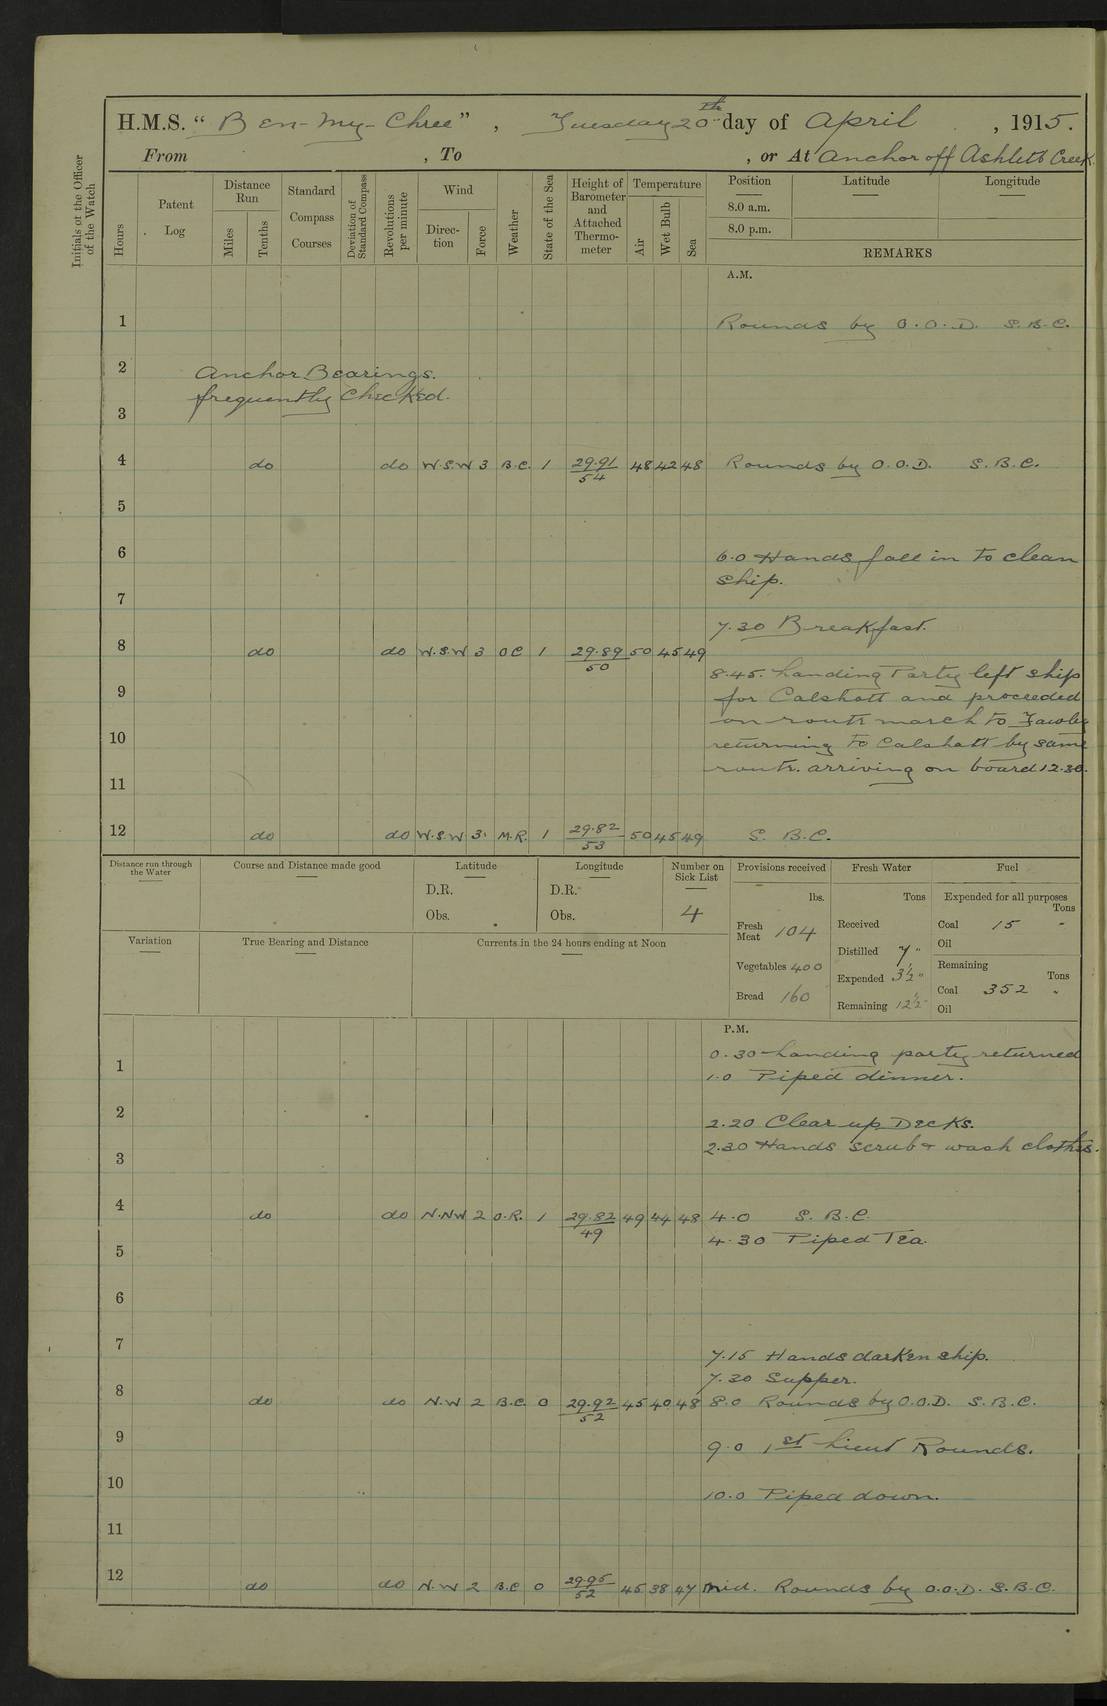 H.M.S. “ Ben-my-Chree” , Tuesday 20th day of April , 1915.
From , To , or At Anchor off Ashlett Creek.
Initials of the Officer of the Watch
Hours
Patent Log
Distance Run
Miles
Tenths
Standard Compass Courses
Deviation of Standard Compass
Revolutions per minute
Wind
Direc- tion
Force
Weather
State of the Sea
Height of Barometer and Attached Thermo- meter
Temperature
Air
Wet Bulb
Sea
Position
8.0 a.m.
8.0 p.m.
Latitude
Longitude
REMARKS
A.M.
1 Rounds by O.O.D. S.B.C.
2 Anchor Bearings.
frequently checked.
3
4 do do W.S.W 3 B.C. 1 29.91/54 48 42 48 Rounds by O.O.D. S.B.C.
5
6 6.0 Hands fall in to clean
ship.
7
7.30 Breakfast.
8 do do W.S.W 3 OC 1 29.89/50 50 45 49
8.45. Landing Party left ship
9 for Calshott and proceeded
on route march to Fawley
10 returning to Calshott by same
route. arriving on board 12.30.
11
12 do do W.S.W 3. M.R. 1 29.82/53 50 45 49 S. B.C.
Distance run through the Water
Course and Distance made good
Latitude
D.R.
Obs.
Longitude
D.R.
Obs.
Number on Sick List
4
Variation
True Bearing and Distance
Currents in the 24 hours ending at Noon
Provisions received
lbs.
Fresh Meat 104
Vegetables 400
Bread 160
Fresh Water
Tons
Received
Distilled 7 "
Expended 3½ "
Remaining 12½
Fuel
Expended for all purposes
Tons
Coal 15 "
Oil
Remaining
Tons
Coal 352 "
Oil
P.M.
0.30 Landing party returned
1 1.0 Piped dinner.
2 2.20 Clear up Decks.
2.30 Hands scrub & wash clothes.
3
4 do do N.NW 2 O.R. 1 29.82/49 49 44 48 4.0 S. B.C.
4.30 Piped Tea.
5
6
7
7.15 Hands darken ship.
7.30 Supper.
8 do do N.W 2 B.C. 0 29.92/52 45 40 48 8.0 Rounds by O.O.D. S.B.C.
9 9.0 1st Lieut Rounds.
10 10.0 Piped down.
11
12 do do N.W 2 B.C 0 29.95/52 45 38 47 Mid. Rounds by O.O.D. S.B.C.